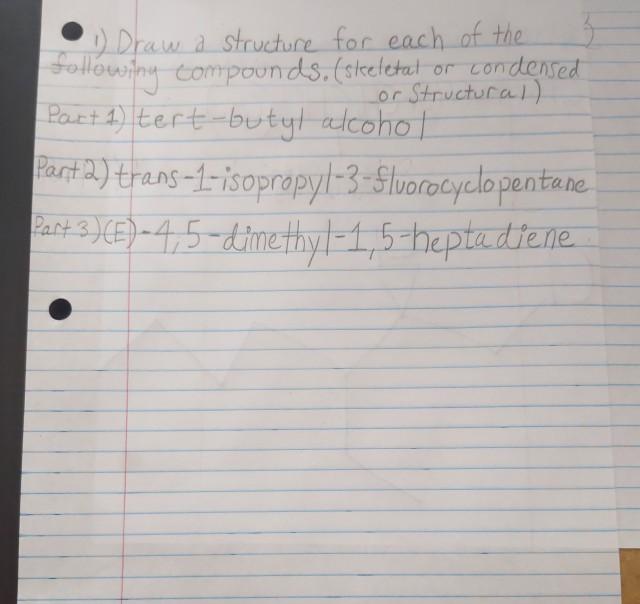 1) Draw a structure for each of the
following compounds. (skeletal or condensed
or Structural)
Part 1) tert-butyl alcohol
Part 2) trans-1-isopropyl-3-fluorocyclopentane
Part 3) (E)-4,5-dimethyl-1,5-heptadiene